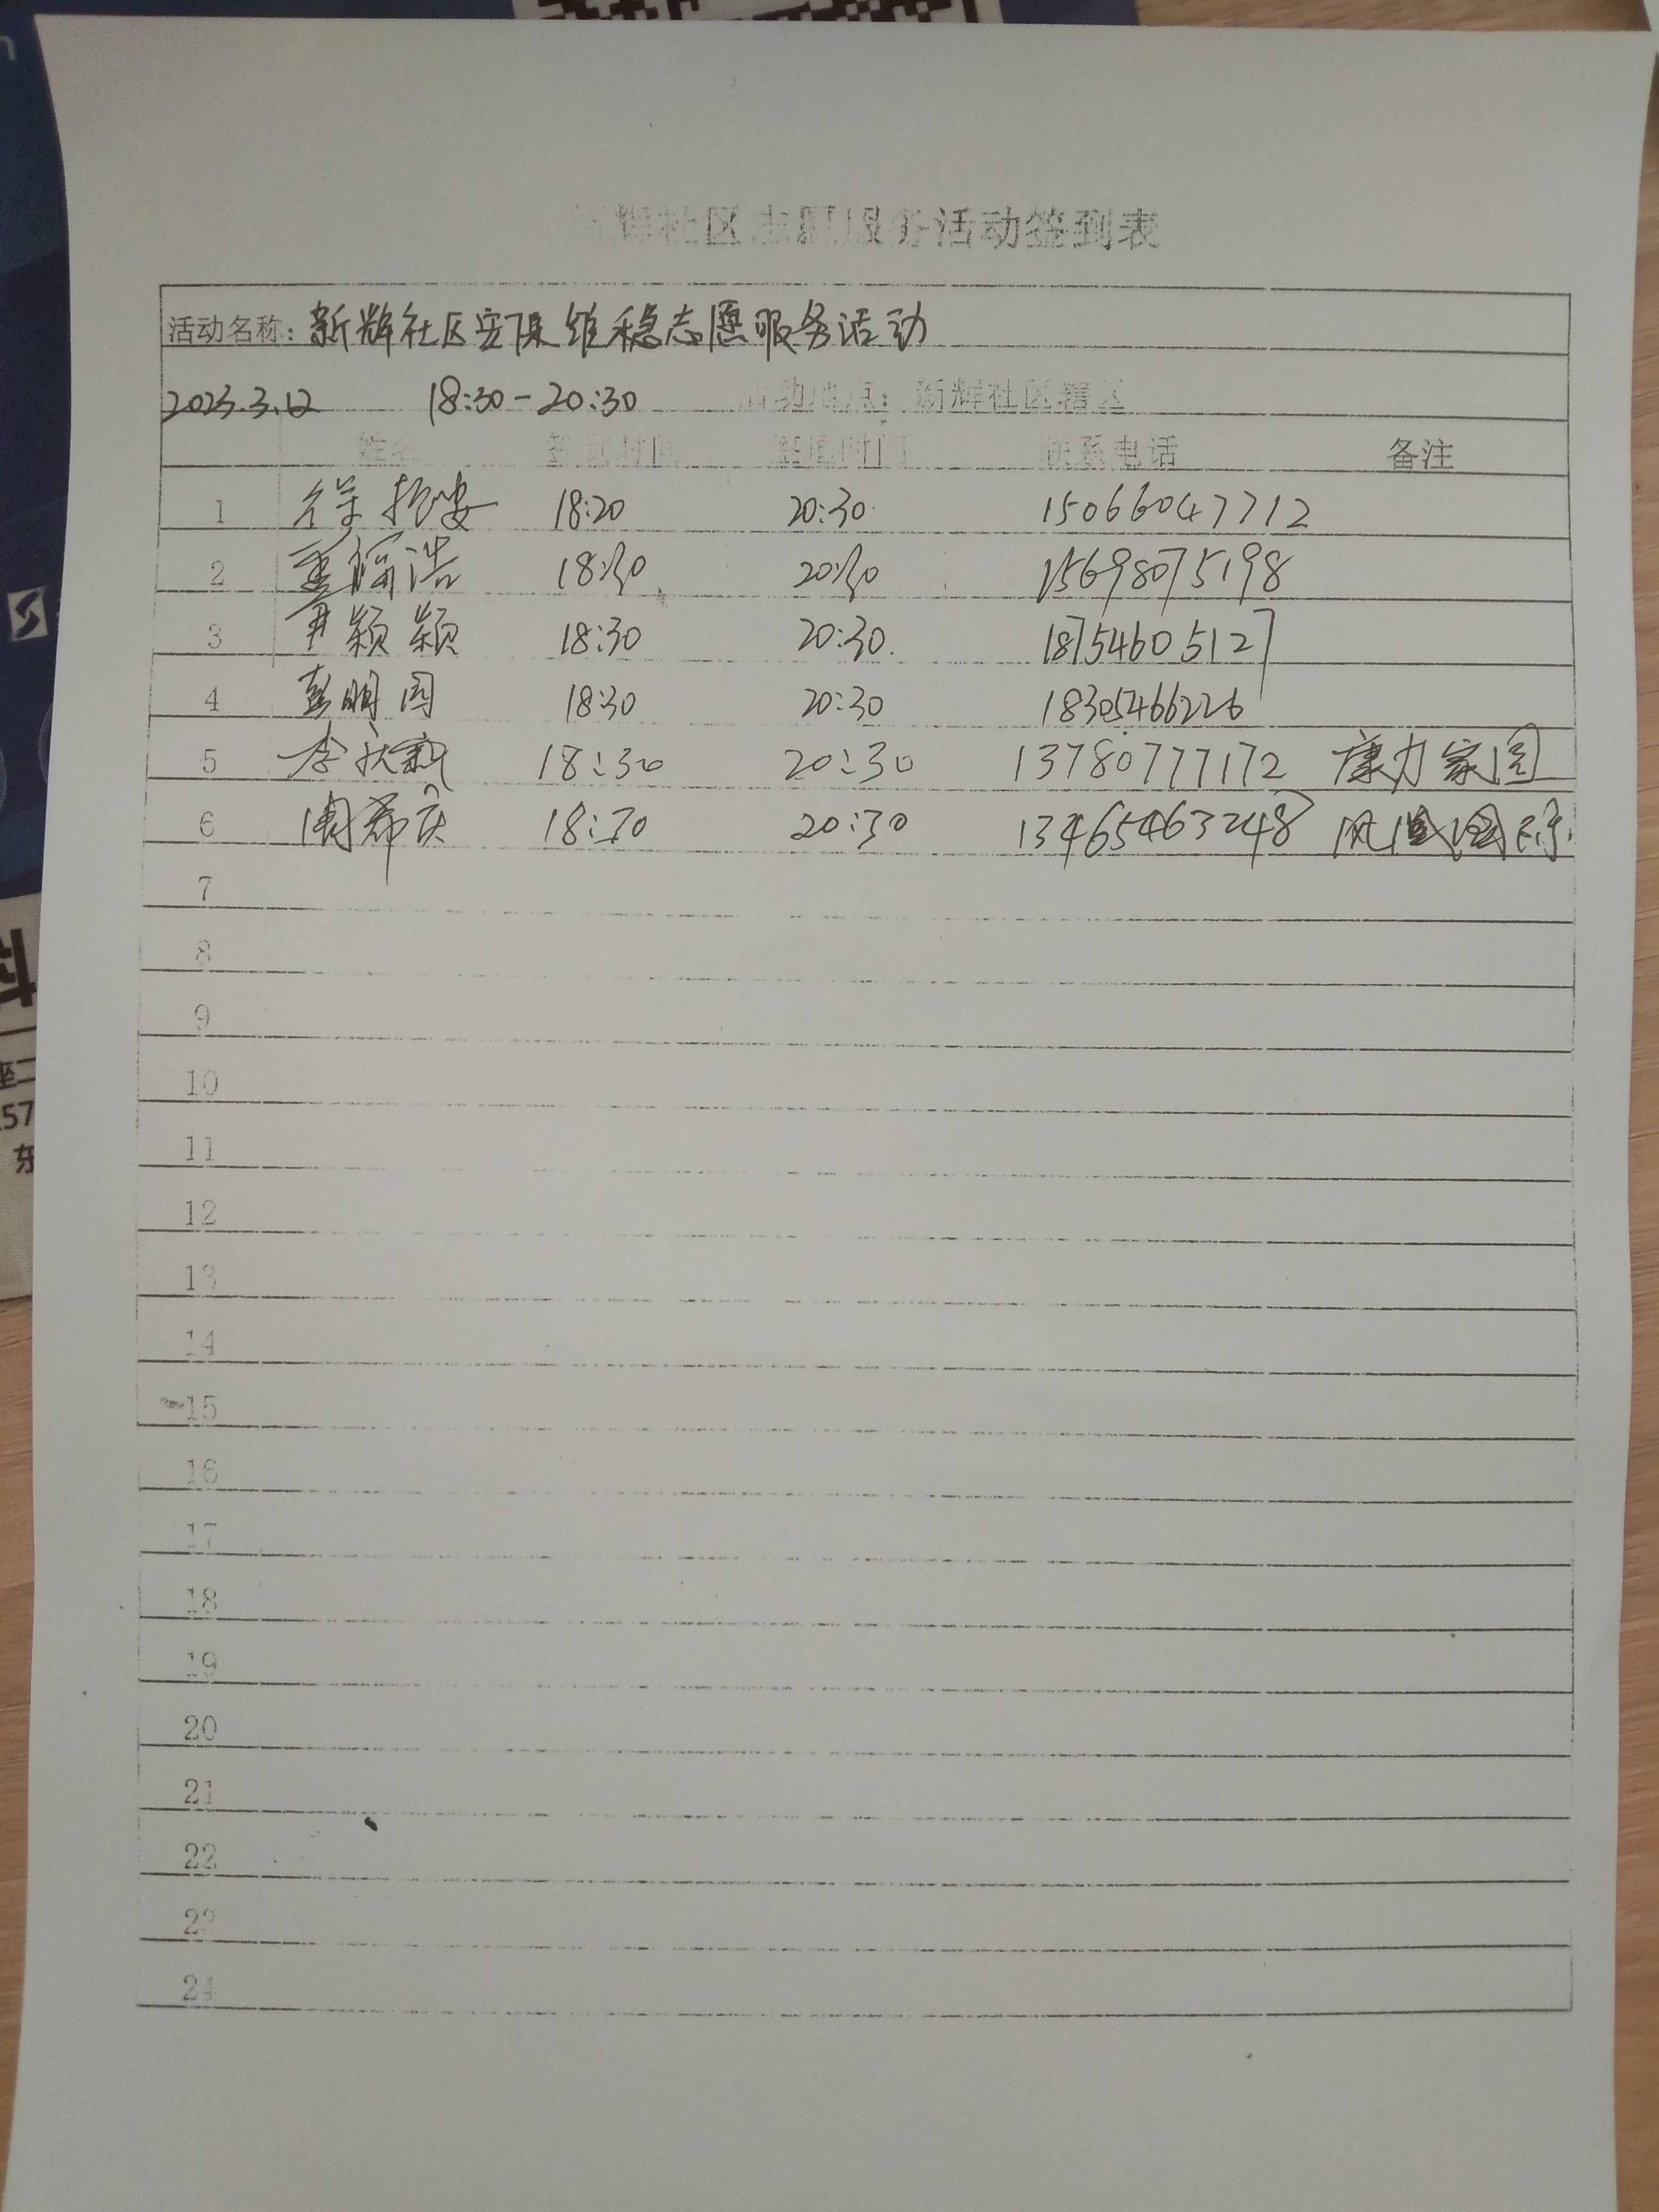 新辉社区志愿服务活动签到表
活动名称：新辉社区安保维稳志愿服务活动
2023.3.12 18:30-20:30 活动地点：新辉社区辖区
姓名 签到时间 签退时间 联系电话 备注
1 徐 18:20 20:30 15066047712
2 浩 18:30 20:30 15698075198
3 尹颖颖 18:30 20:30. 18754605127
4 彭明国 18:30 20:30 18305466226
5 李庆新 18:30 20:30 13780777172 康力家园
6 周希庆 18:30 20:30 13465463248
7
8
9
10
11
12
13
14
15
16
17
18
19
20
21
22
23
24
座二
57
东